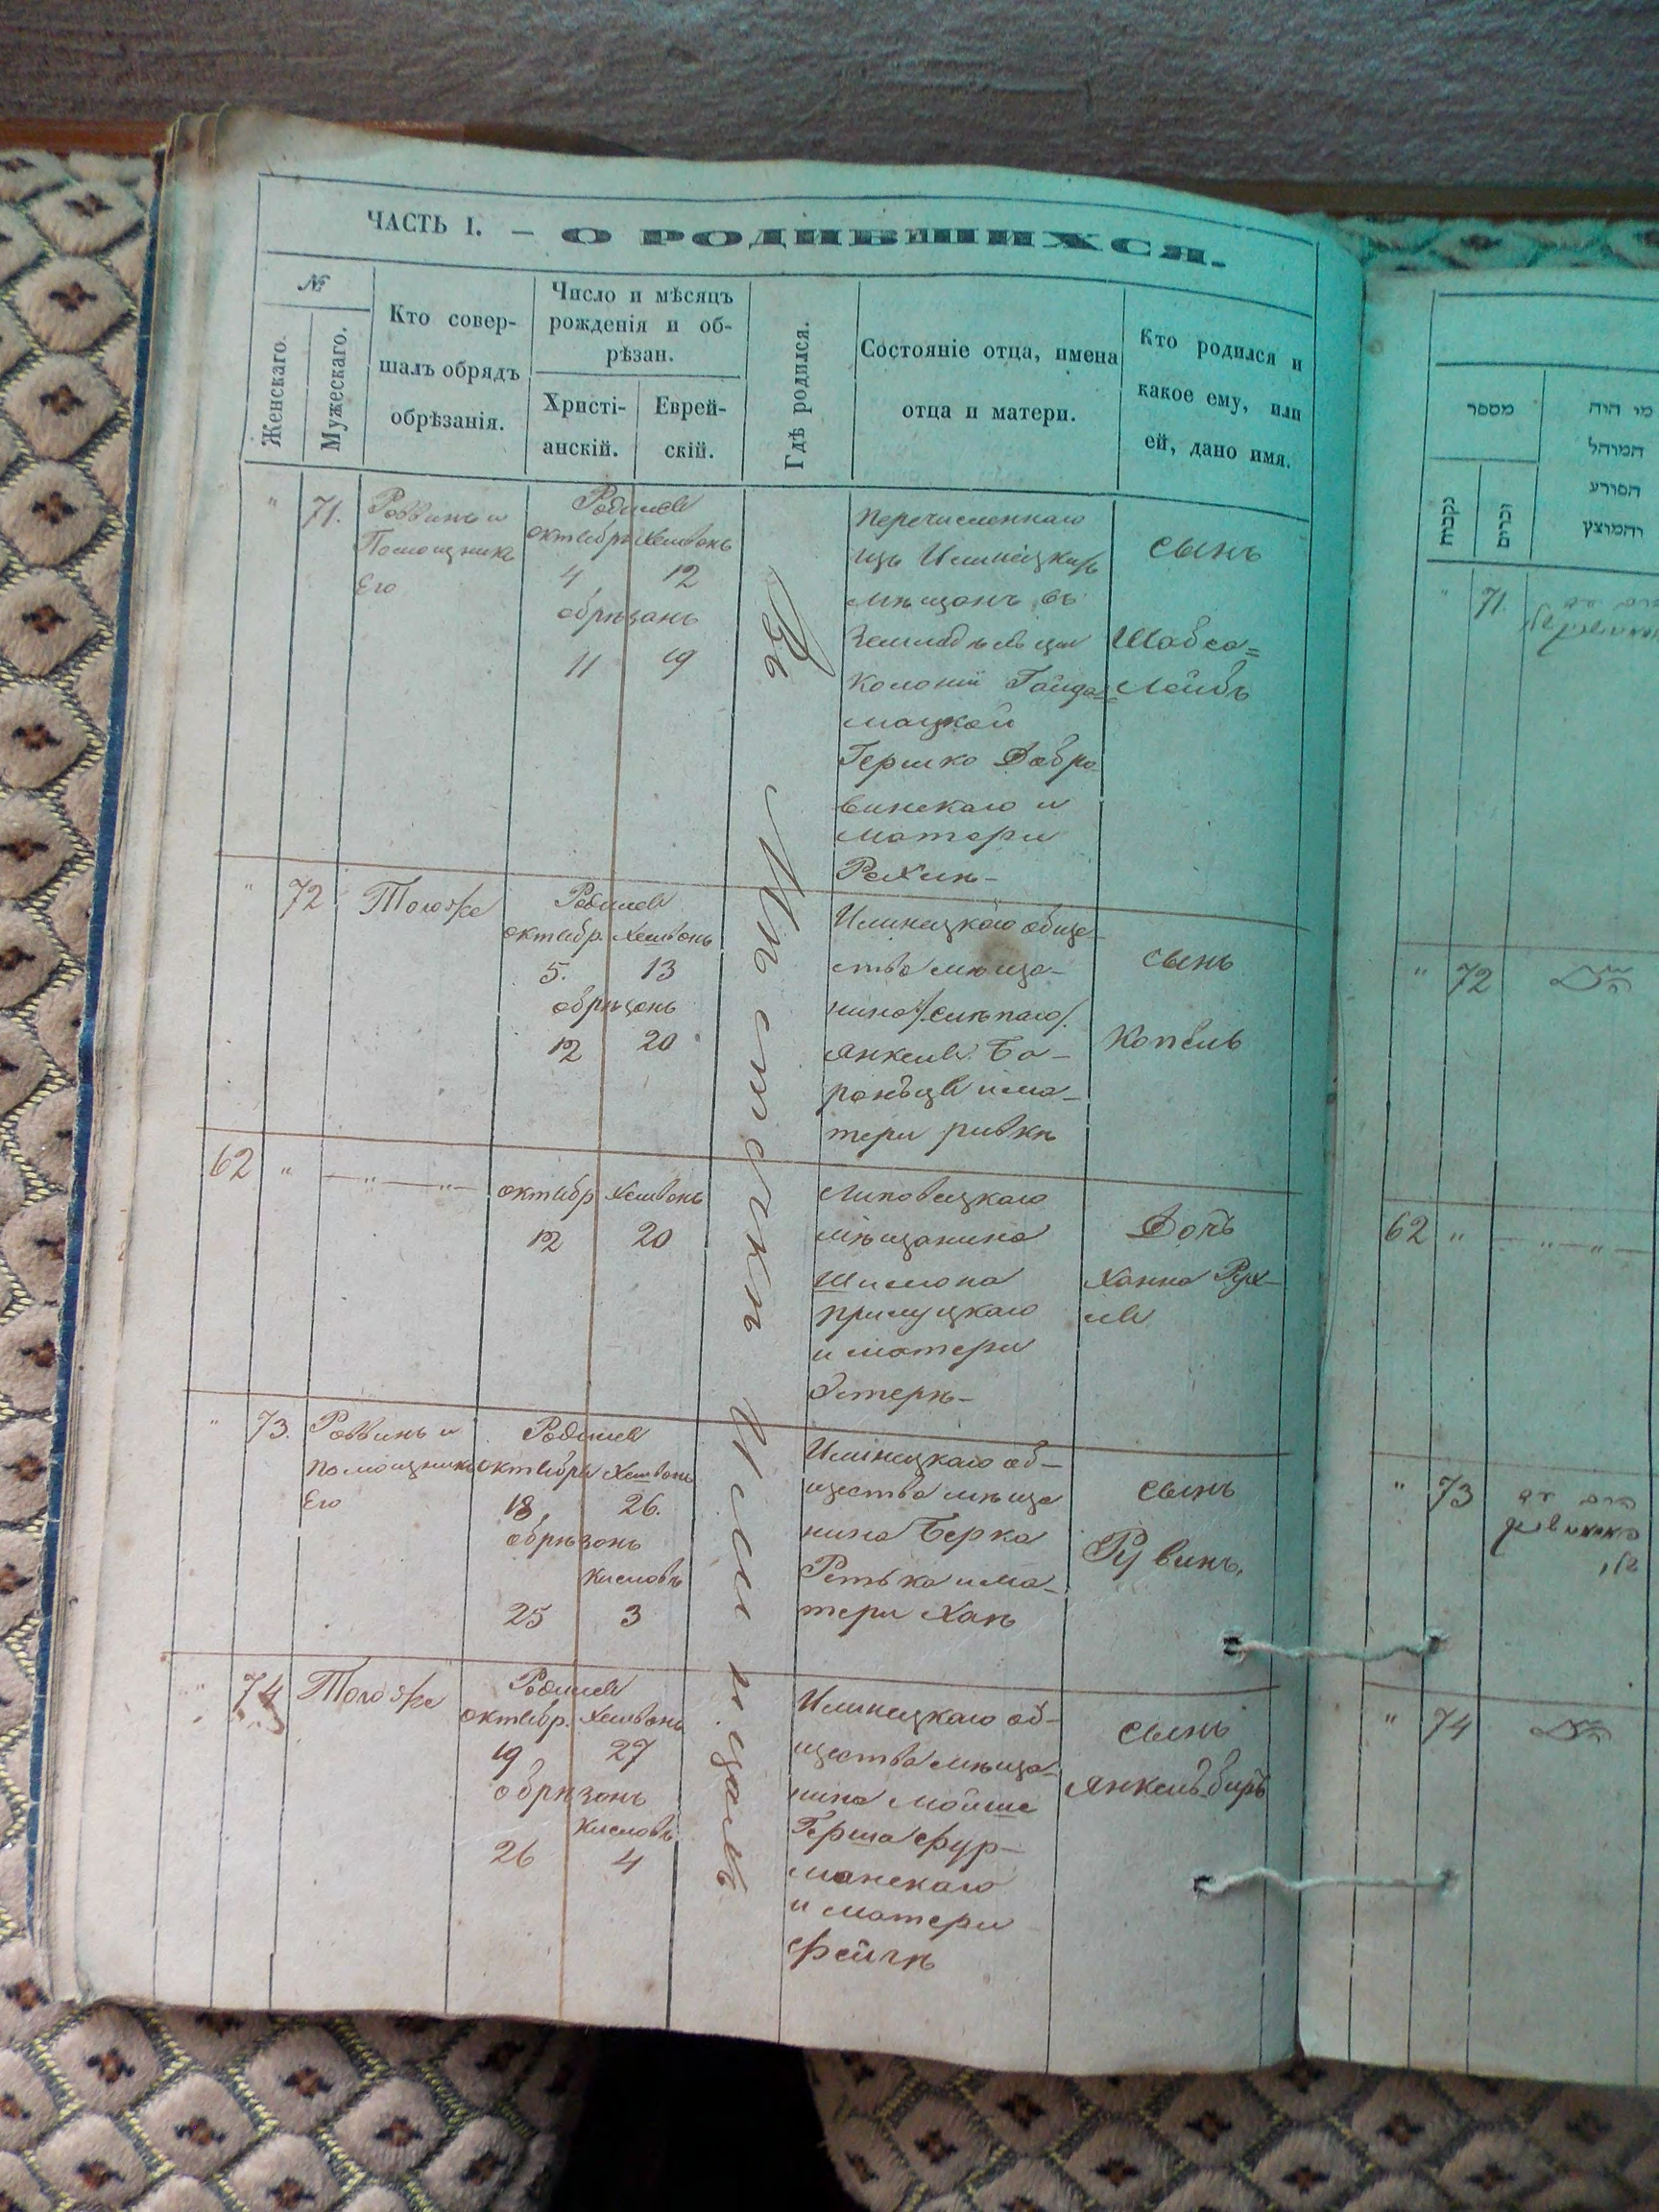 ЧАСТЬ I. — О РОДИВШИХСЯ.
№
Женскаго.
Мужескаго.
Кто совер-
шалъ обрядъ
обрѣзанія.
Число и мѣсяцъ
рожденія и об-
рѣзан.
Христі-
анскій.
Еврей-
скій.
Гдѣ родился.
Состояніе отца, имена
отца и матери.
Кто родился и
какое ему, или
ей, дано имя.
" 71.
Раввинъ и
Помощникъ
Его
Родился
октября Хешвонъ
4 12
обрѣзанъ
11 19
Въ
перечисленнаго
изъ Илинецкихъ
мѣщанъ въ
колоніи Гайда=
мацкой
Гершко Добро
винскаго и
матери
Рехли-
сынъ
Шабса=
Лейбъ
" 72
Тогоже
Родился
октябр. Хешвонъ
5. 13
обрѣзонъ
12 20
Илинецкаго обще-
ства мѣща-
нина /:слѣпаго/:
янкеля Ба-
ранъца има-
тери ривкѣ
сынъ
Копель
62 " — " — " —
октябр Хешвонъ
12 20
Липовецкаго
мѣщанина
Шимона
прилуцкаго
и матери
Эстерѣ-
Дочъ
Ханна Рух-
ля
" 73.
Раввинъ и
помощникъ
Его
Родился
октября Хешвонъ
18, 26.
обрѣзонъ
Кислевъ
25 3
Илінецкаго об-
щества мѣща
нина Берка
Ретька има-
тери Ханѣ
сынъ
Рувинъ,
" 74
Тогоже
Родился
октябр. Хешвонъ
19 27
обрѣзонъ
Кислевъ
26 4
Илинецкаго об-
щества мѣща-
нина Мойше
Герша Фур-
манскаго
и матери
Фейгѣ
сынъ
янкель-биръ
מספר
נקבות
זכרים
מי היה
המוהל
הפורע
והמוצץ
" 71.
" 72
62 "
" 73
" 74